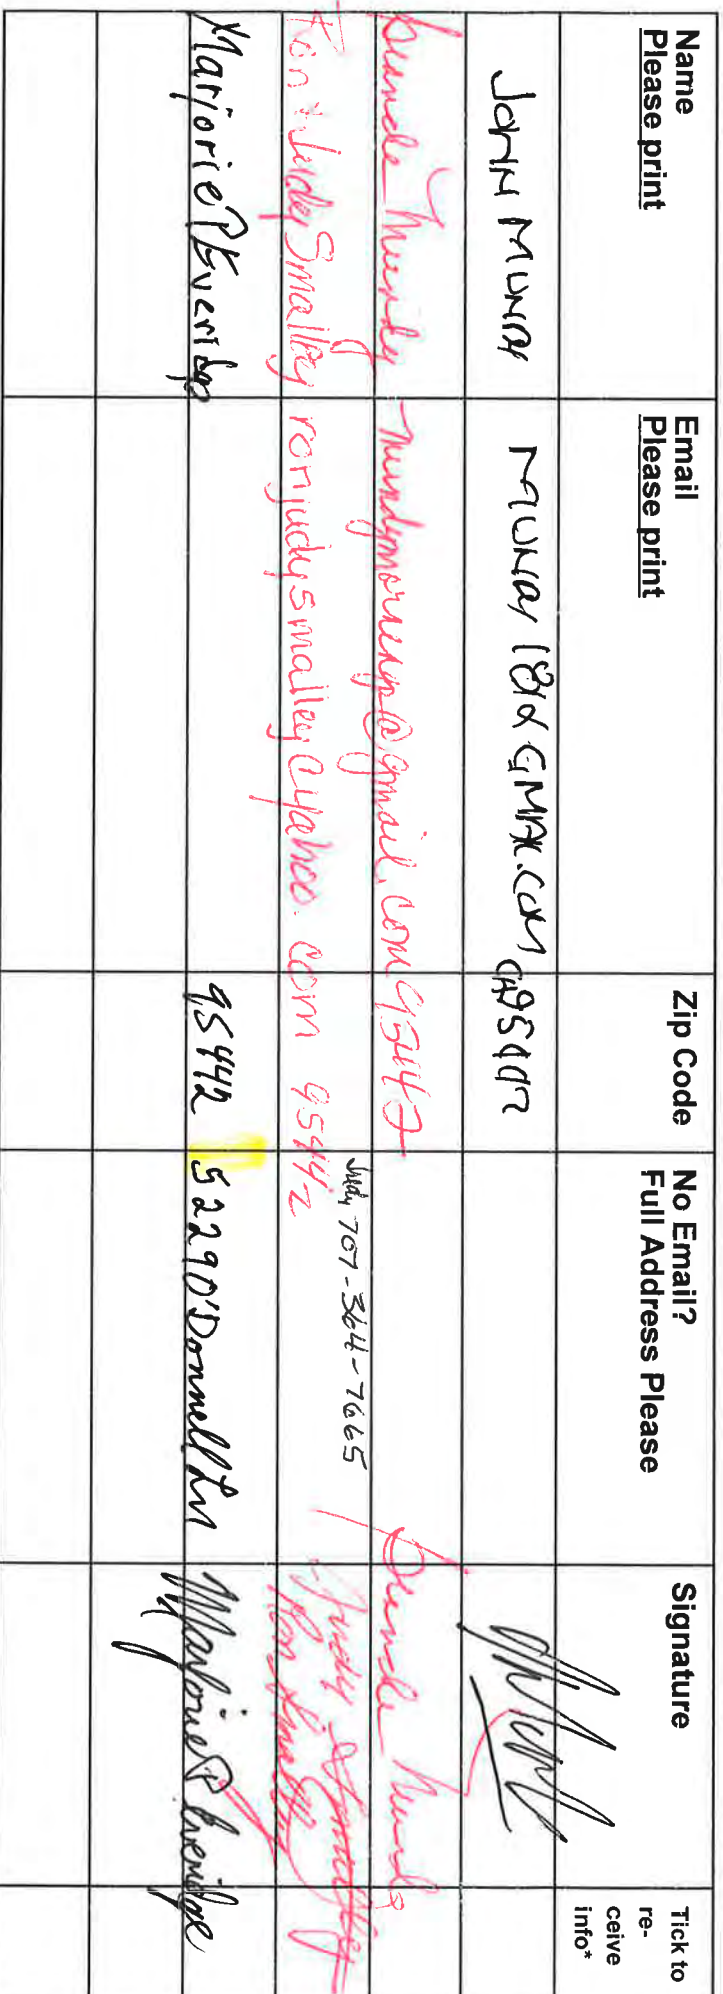 Name
Please print
Email
Please print
Zip Code
No Email?
Full Address Please
Signature
Tick to
re-
ceive
info*
JOHN MUNDY
MUNDY 181 GMAIL.COM
CA 95442
Mundy
@gmail.com
95442
Ron + Judy Smalley
ronjudysmalley@yahoo.com
95442
Judy 707-364-7665
Judy Smalley
Ron Smalley
Marjorie P Everidge
95442
5229 O'Donnell Ln
Marjorie P Everidge